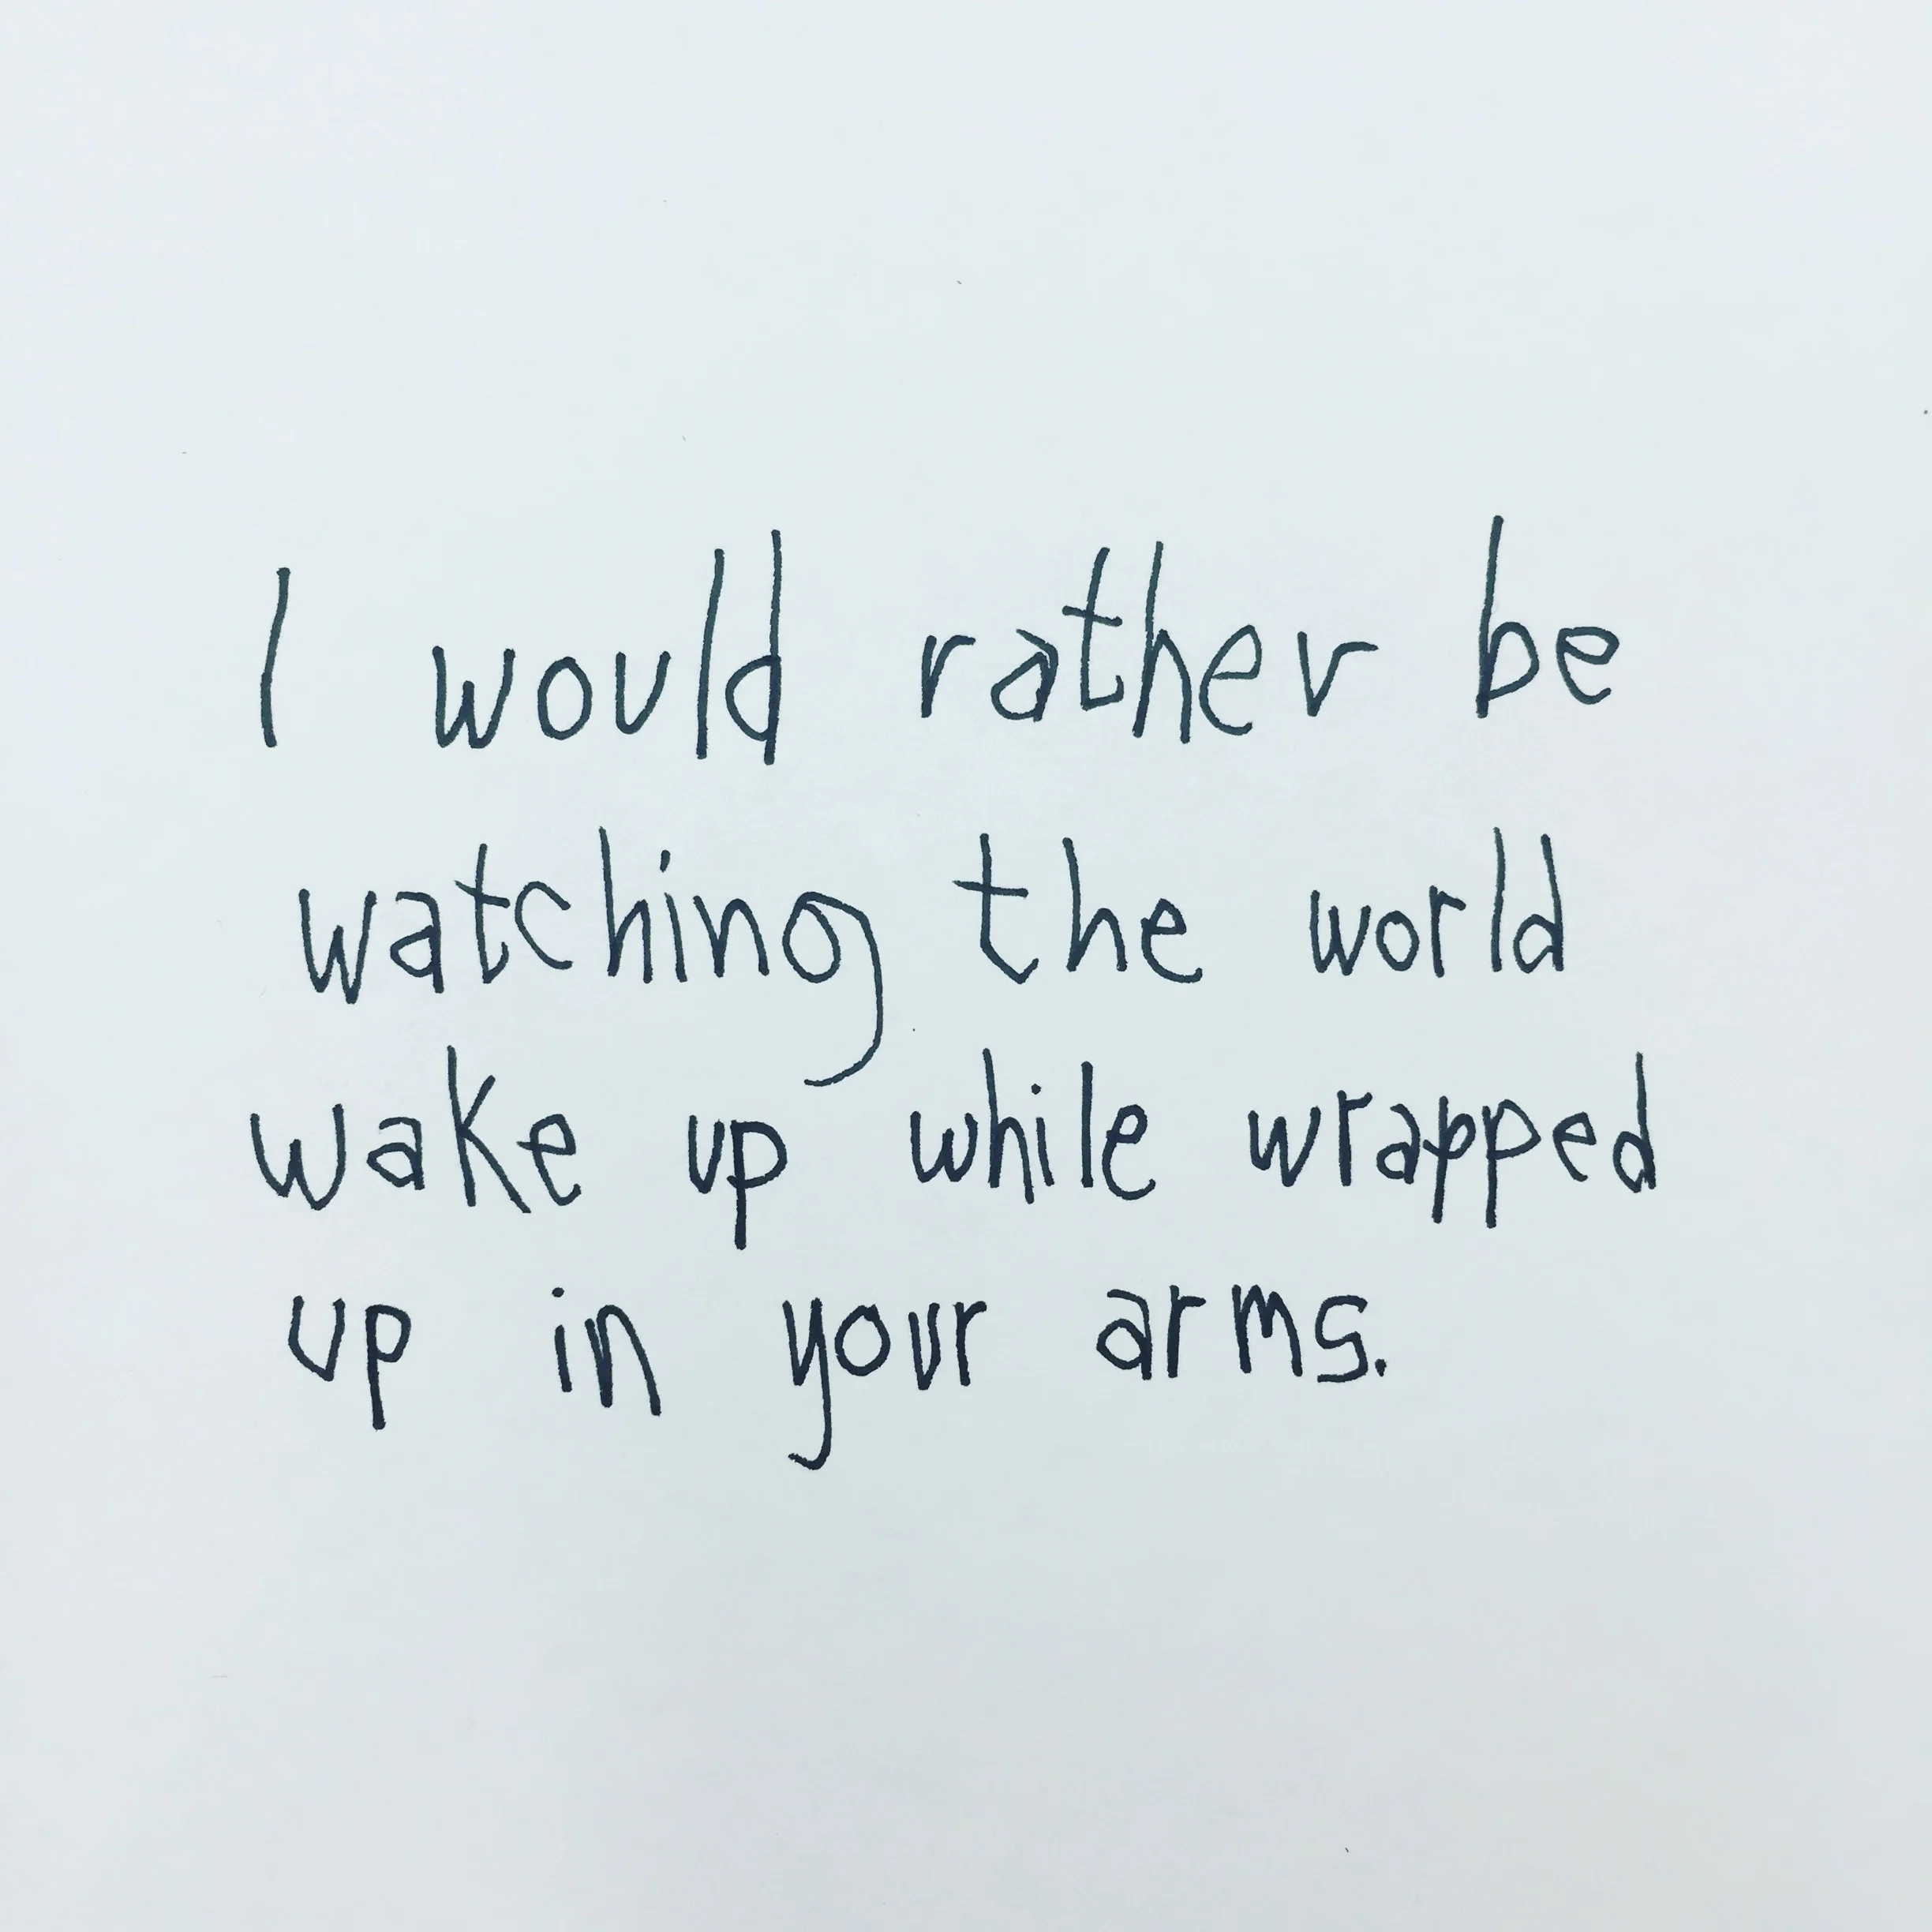 I would rather be
watching the world
wake up while wrapped
up in your arms.